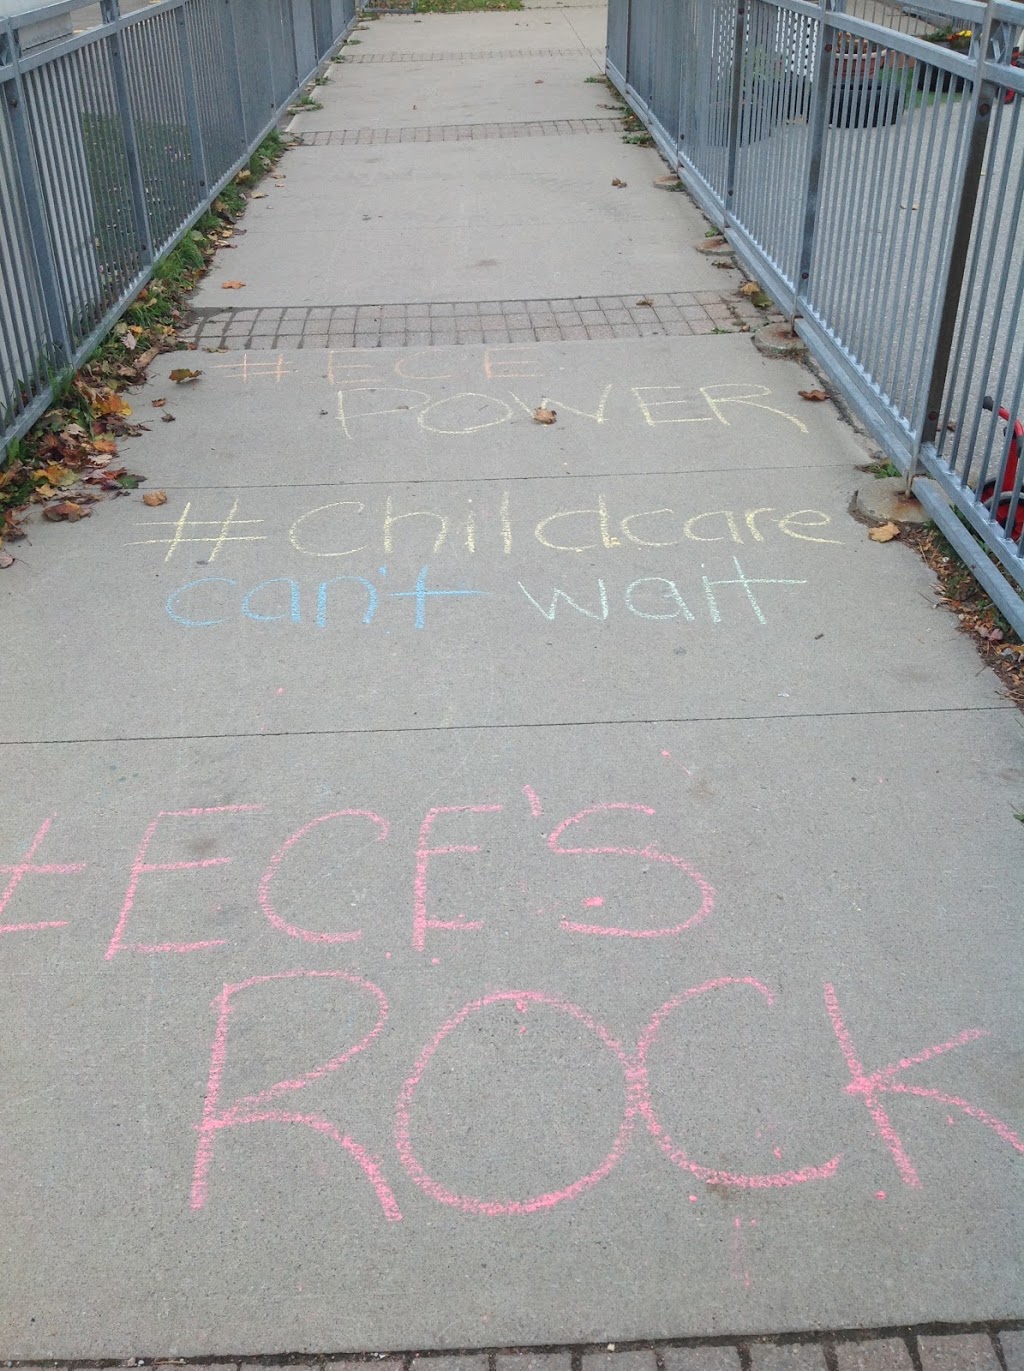 #ECE
POWER
#Childcare
can't wait
#ECE'S
ROCK